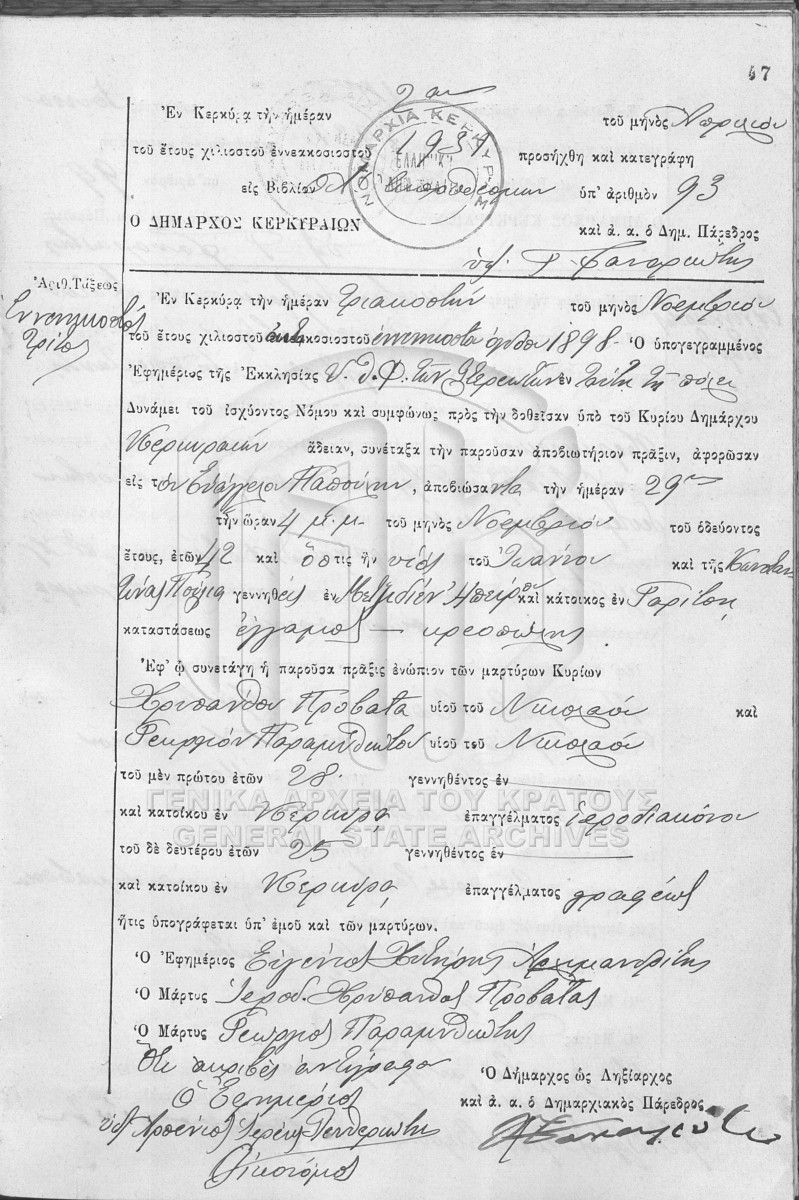 47
Ἐν Κερκύρᾳ τὴν ἡμέραν 2αν τοῦ μηνὸς Ἀπριλίου
τοῦ ἔτους χιλιοστοῦ ἐννεακοσιοστοῦ 1931 προσήχθη καὶ κατεγράφη
εἰς Βιβλίον ὑπ' ἀριθμὸν 93
ΝΟΜΑΡΧΙΑ ΚΕΡΚΥΡΑΣ
Ο ΔΗΜΑΡΧΟΣ ΚΕΡΚΥΡΑΙΩΝ καὶ ἀ. α. ὁ Δημ. Πάρεδρος
Ἀριθ. Τάξεως
Ἐννενηκοστὸς
τρίτος
Ἐν Κερκύρᾳ τὴν ἡμέραν τριακοστὴν τοῦ μηνὸς Νοεμβρίου
τοῦ ἔτους χιλιοστοῦ ὀκτακοσιοστοῦ ἐννενηκοστοῦ ὀγδόου 1898 - Ὁ ὑπογεγραμμένος
Ἐφημέριος τῆς Ἐκκλησίας Υ. Θ. Φ. τῶν ἐν ταύτῃ τῇ πόλει
Δυνάμει τοῦ ἰσχύοντος Νόμου καὶ συμφώνως πρὸς τὴν δοθεῖσαν ὑπὸ τοῦ Κυρίου Δημάρχου
Κερκυραίων ἄδειαν, συνέταξα τὴν παροῦσαν ἀποβιωτήριον πρᾶξιν, ἀφορῶσαν
εἰς τὸν Εὐάγγελον Παπούλην, ἀποβιώσαντα τὴν ἡμέραν 29ην
τὴν ὥραν 4 μ.μ. τοῦ μηνὸς Νοεμβρίου τοῦ ὁδεύοντος
ἔτους, ἐτῶν 42 καὶ ὅστις ἦν υἱὸς τοῦ Ἰωάννου καὶ τῆς Κωνσταν
τίνας γεννηθεὶς ἐν Ἠπείρου καὶ κάτοικος ἐν Γαρίτσῃ
καταστάσεως ἔγγαμος - κρεοπώλης
Ἐφ' ᾧ συνετάγη ἡ παροῦσα πρᾶξις ἐνώπιον τῶν μαρτύρων Κυρίων
Χρυσάνθου Προβατᾶ υἱοῦ τοῦ Νικολάου καὶ
Γεωργίου Παραμυθιώτου υἱοῦ τοῦ Νικολάου
τοῦ μὲν πρώτου ἐτῶν 28 γεννηθέντος ἐν
ΓΕΝΙΚΑ ΑΡΧΕΙΑ ΤΟΥ ΚΡΑΤΟΥΣ
καὶ κατοίκου ἐν Κερκύρᾳ ἐπαγγέλματος ἱεροδιακόνου
GENERAL STATE ARCHIVES
τοῦ δὲ δευτέρου ἐτῶν 25 γεννηθέντος ἐν
καὶ κατοίκου ἐν Κερκύρᾳ ἐπαγγέλματος γραφέως
ἥτις ὑπογράφεται ὑπ' ἐμοῦ καὶ τῶν μαρτύρων.
Ὁ Ἐφημέριος Εὐγένιος Ἀρχιμανδρίτης
Ὁ Μάρτυς Ἱεροδ. Χρύσανθος Προβατᾶς
Ὁ Μάρτυς Γεώργιος Παραμυθιώτης
Ὅτι ἀκριβὲς ἀντίγραφον
Ὁ Ἐφημέριος
Ὁ Δήμαρχος ὡς Ληξίαρχος
καὶ ἀ. α. ὁ Δημαρχιακὸς Πάρεδρος
Ἀρσένιος Ἱερεὺς
Οἰκονόμος